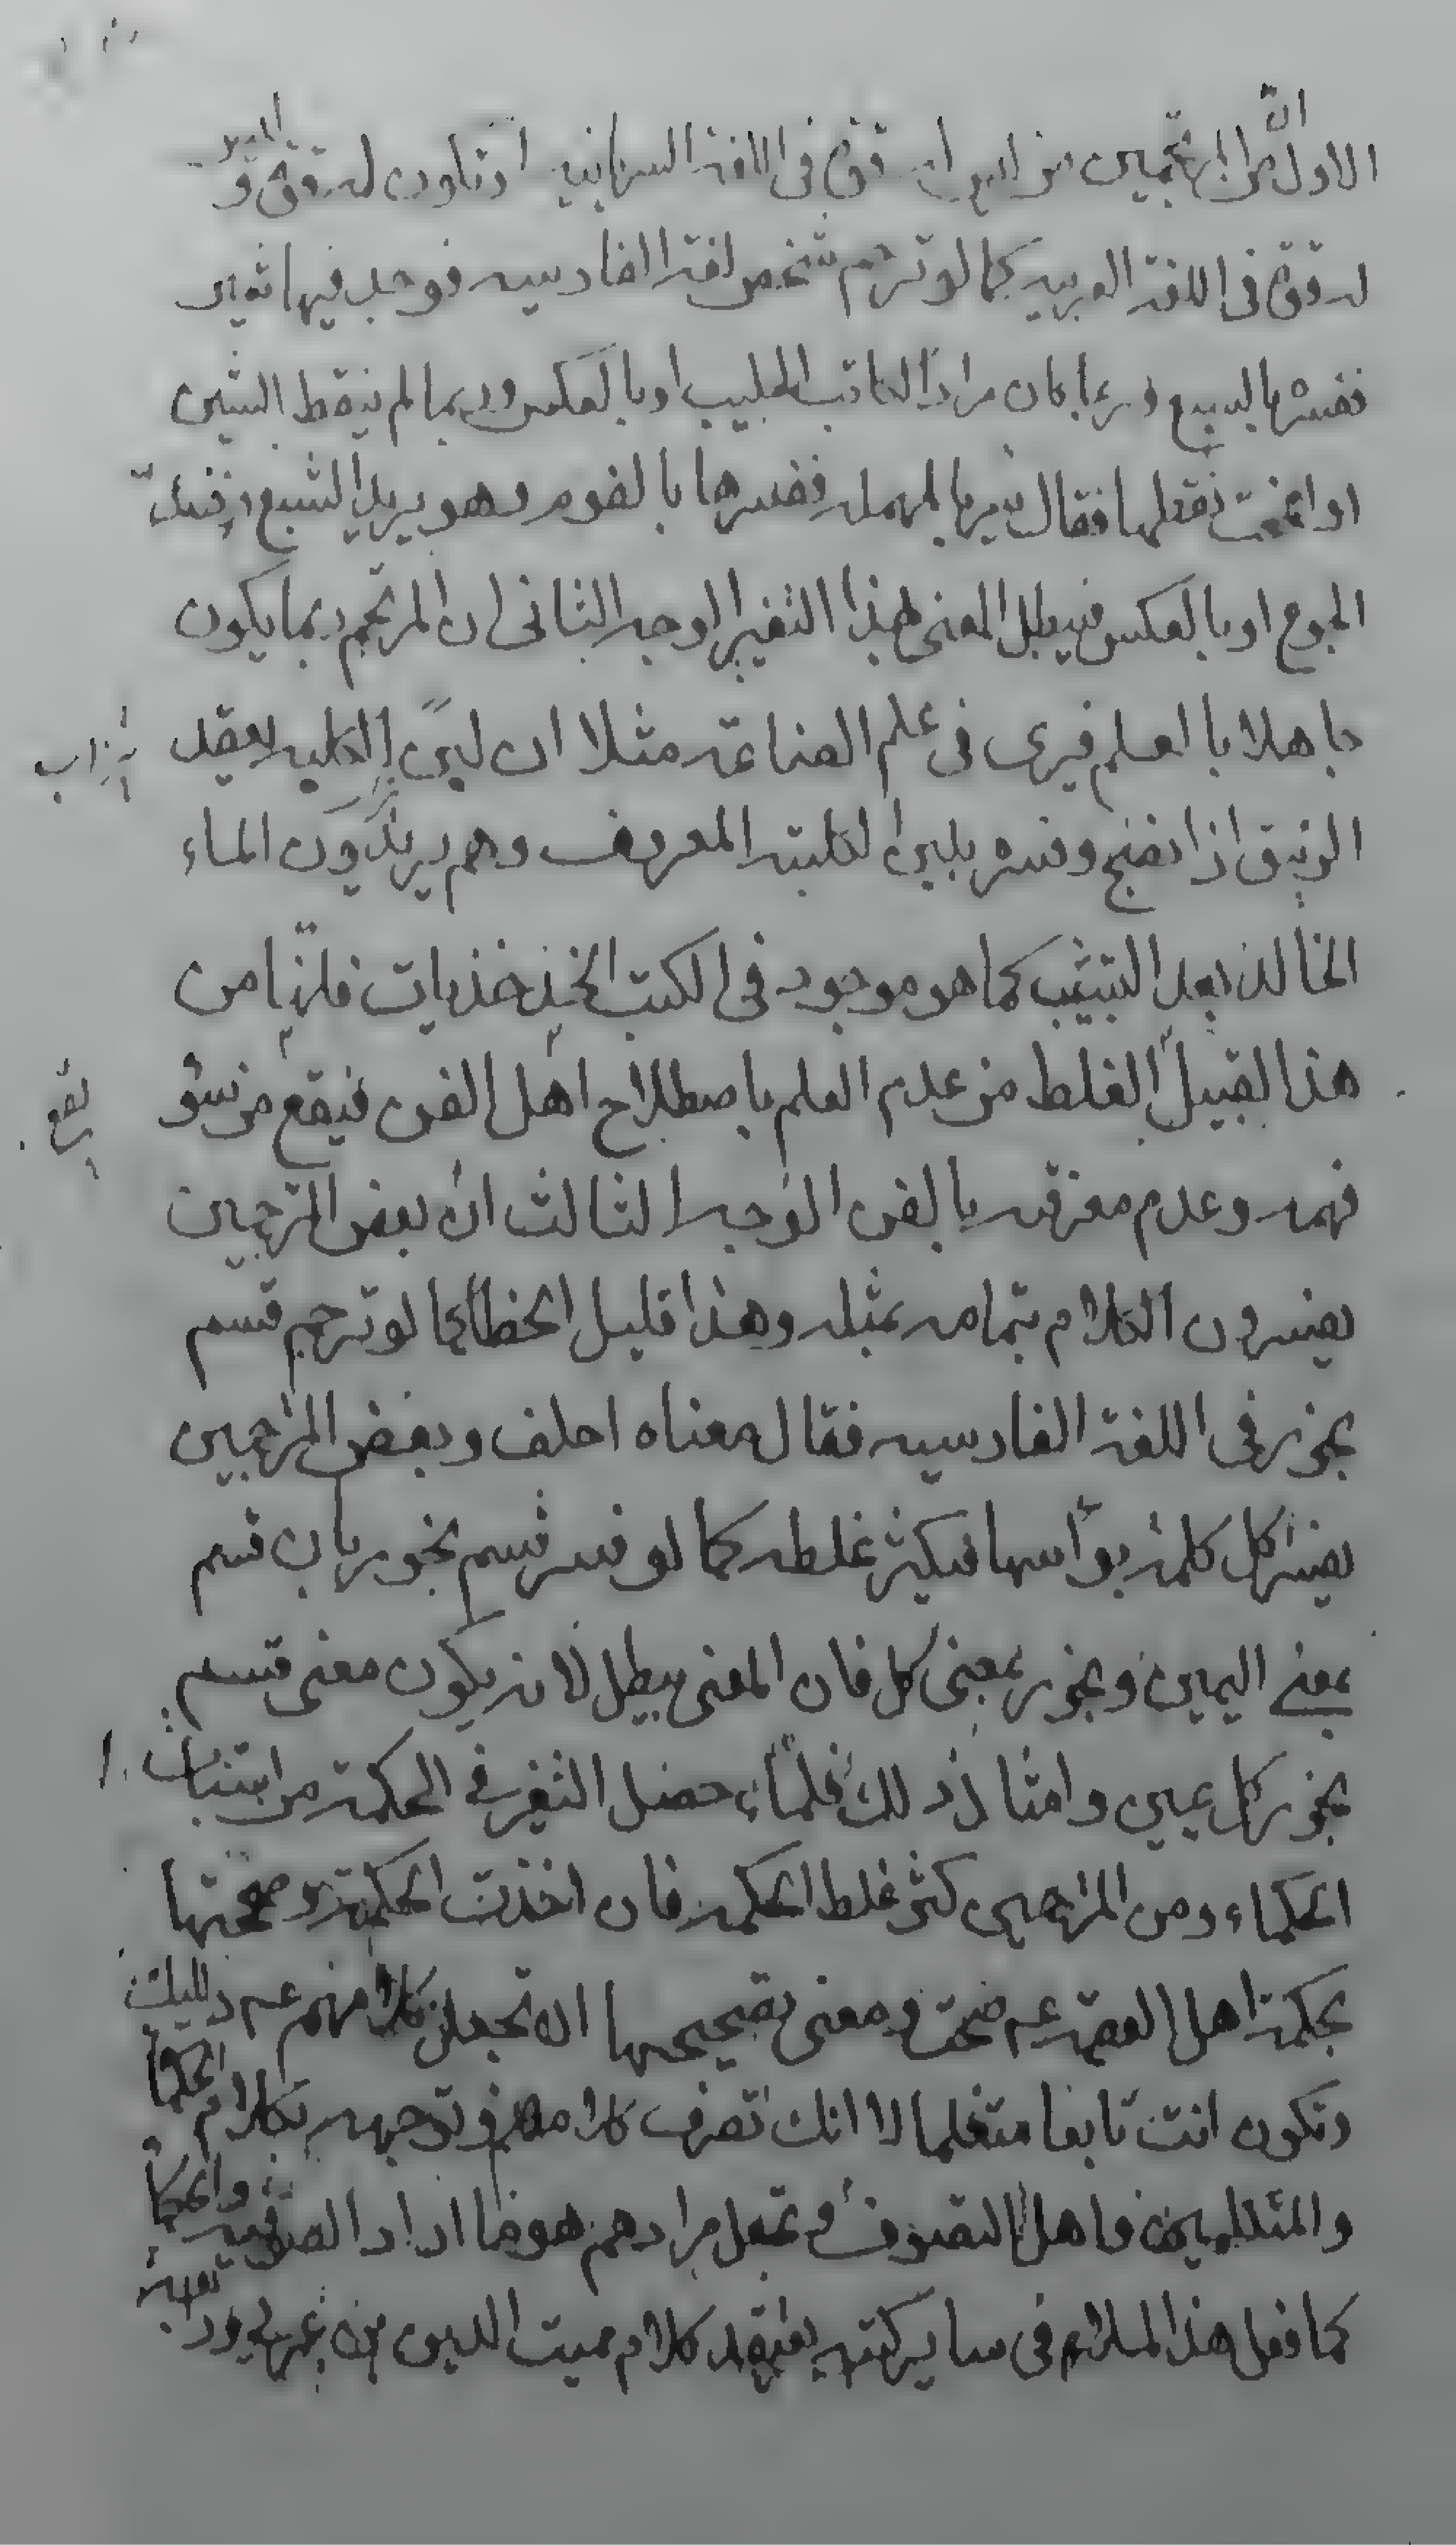 الاول ان من المترجمين من ليس له قوة فى اللغة السريانيه او تكون له قوة و
له قوة فى اللغة العربيه كما لو ترجم شخص لغة الفارسيه فوجد فيها شير
ففسره بالسبع وربما كان مراد الكاتب الحليب او بالعكس وربما لم ينقط الشين
او انمحت نقطها فقال سير بالمهمله ففسرها بالثوم وهو يريد الشبع وضد
الجوع او بالعكس فيبطل المعنى لهذا التغيير الوجه الثانى ان المترجم ربما يكون
جاهلا بالعلم فيرى فى علم الصناعة مثلا ان لبن الكلبه يعقد
الزيبق اذا نضج وفسره بلبن الكلبة المعروف وهم يريدون الماء
الخالد بعد التبييض كما هو موجود فى الكتب فلزم من
هذا القبيل الغلط من عدم العلم باصطلاح اهل الفن فيقع من سوء
يقع
فهمه وعدم معرفته بالفن الوجه الثالث ان بعض المترجمين
يفسرون الكلام بتمامه بمثله وهذا قليل الخطأ كما لو ترجم قسم
بخور فى اللغة الفارسيه فقال معناه احلف وبعض المترجمين
يفسر كل كلمة برأسها فيكثر غلطه كما لو فسر قسم بخور بان قسم
بمعنى اليمين وبخور بمعنى كل فان المعنى يبطل لانه يكون معنى قسم
بخور كل يمين وامثال ذلك فلما حصل التغير فى الحكمة من
الحكماء ومن المترجمين كثر غلط الحكمه فان اخذت الحكمة وصححتها
بحكمة اهل العصمه عم صحت ومعنى تصحيحها ان تجعل كلامهم عم دليلك
وتكون انت تابعا متعلما لا انك تصرف كلامهم وتوجهه بكلام الحكما
والمتكلمين واهل التصوف وتجعل مرادهم هو ما اراد الصوفيه والحكما
كما فعل هذا الملا فى ساير كتبه يعتقد كلام مميت الدين بن عربى